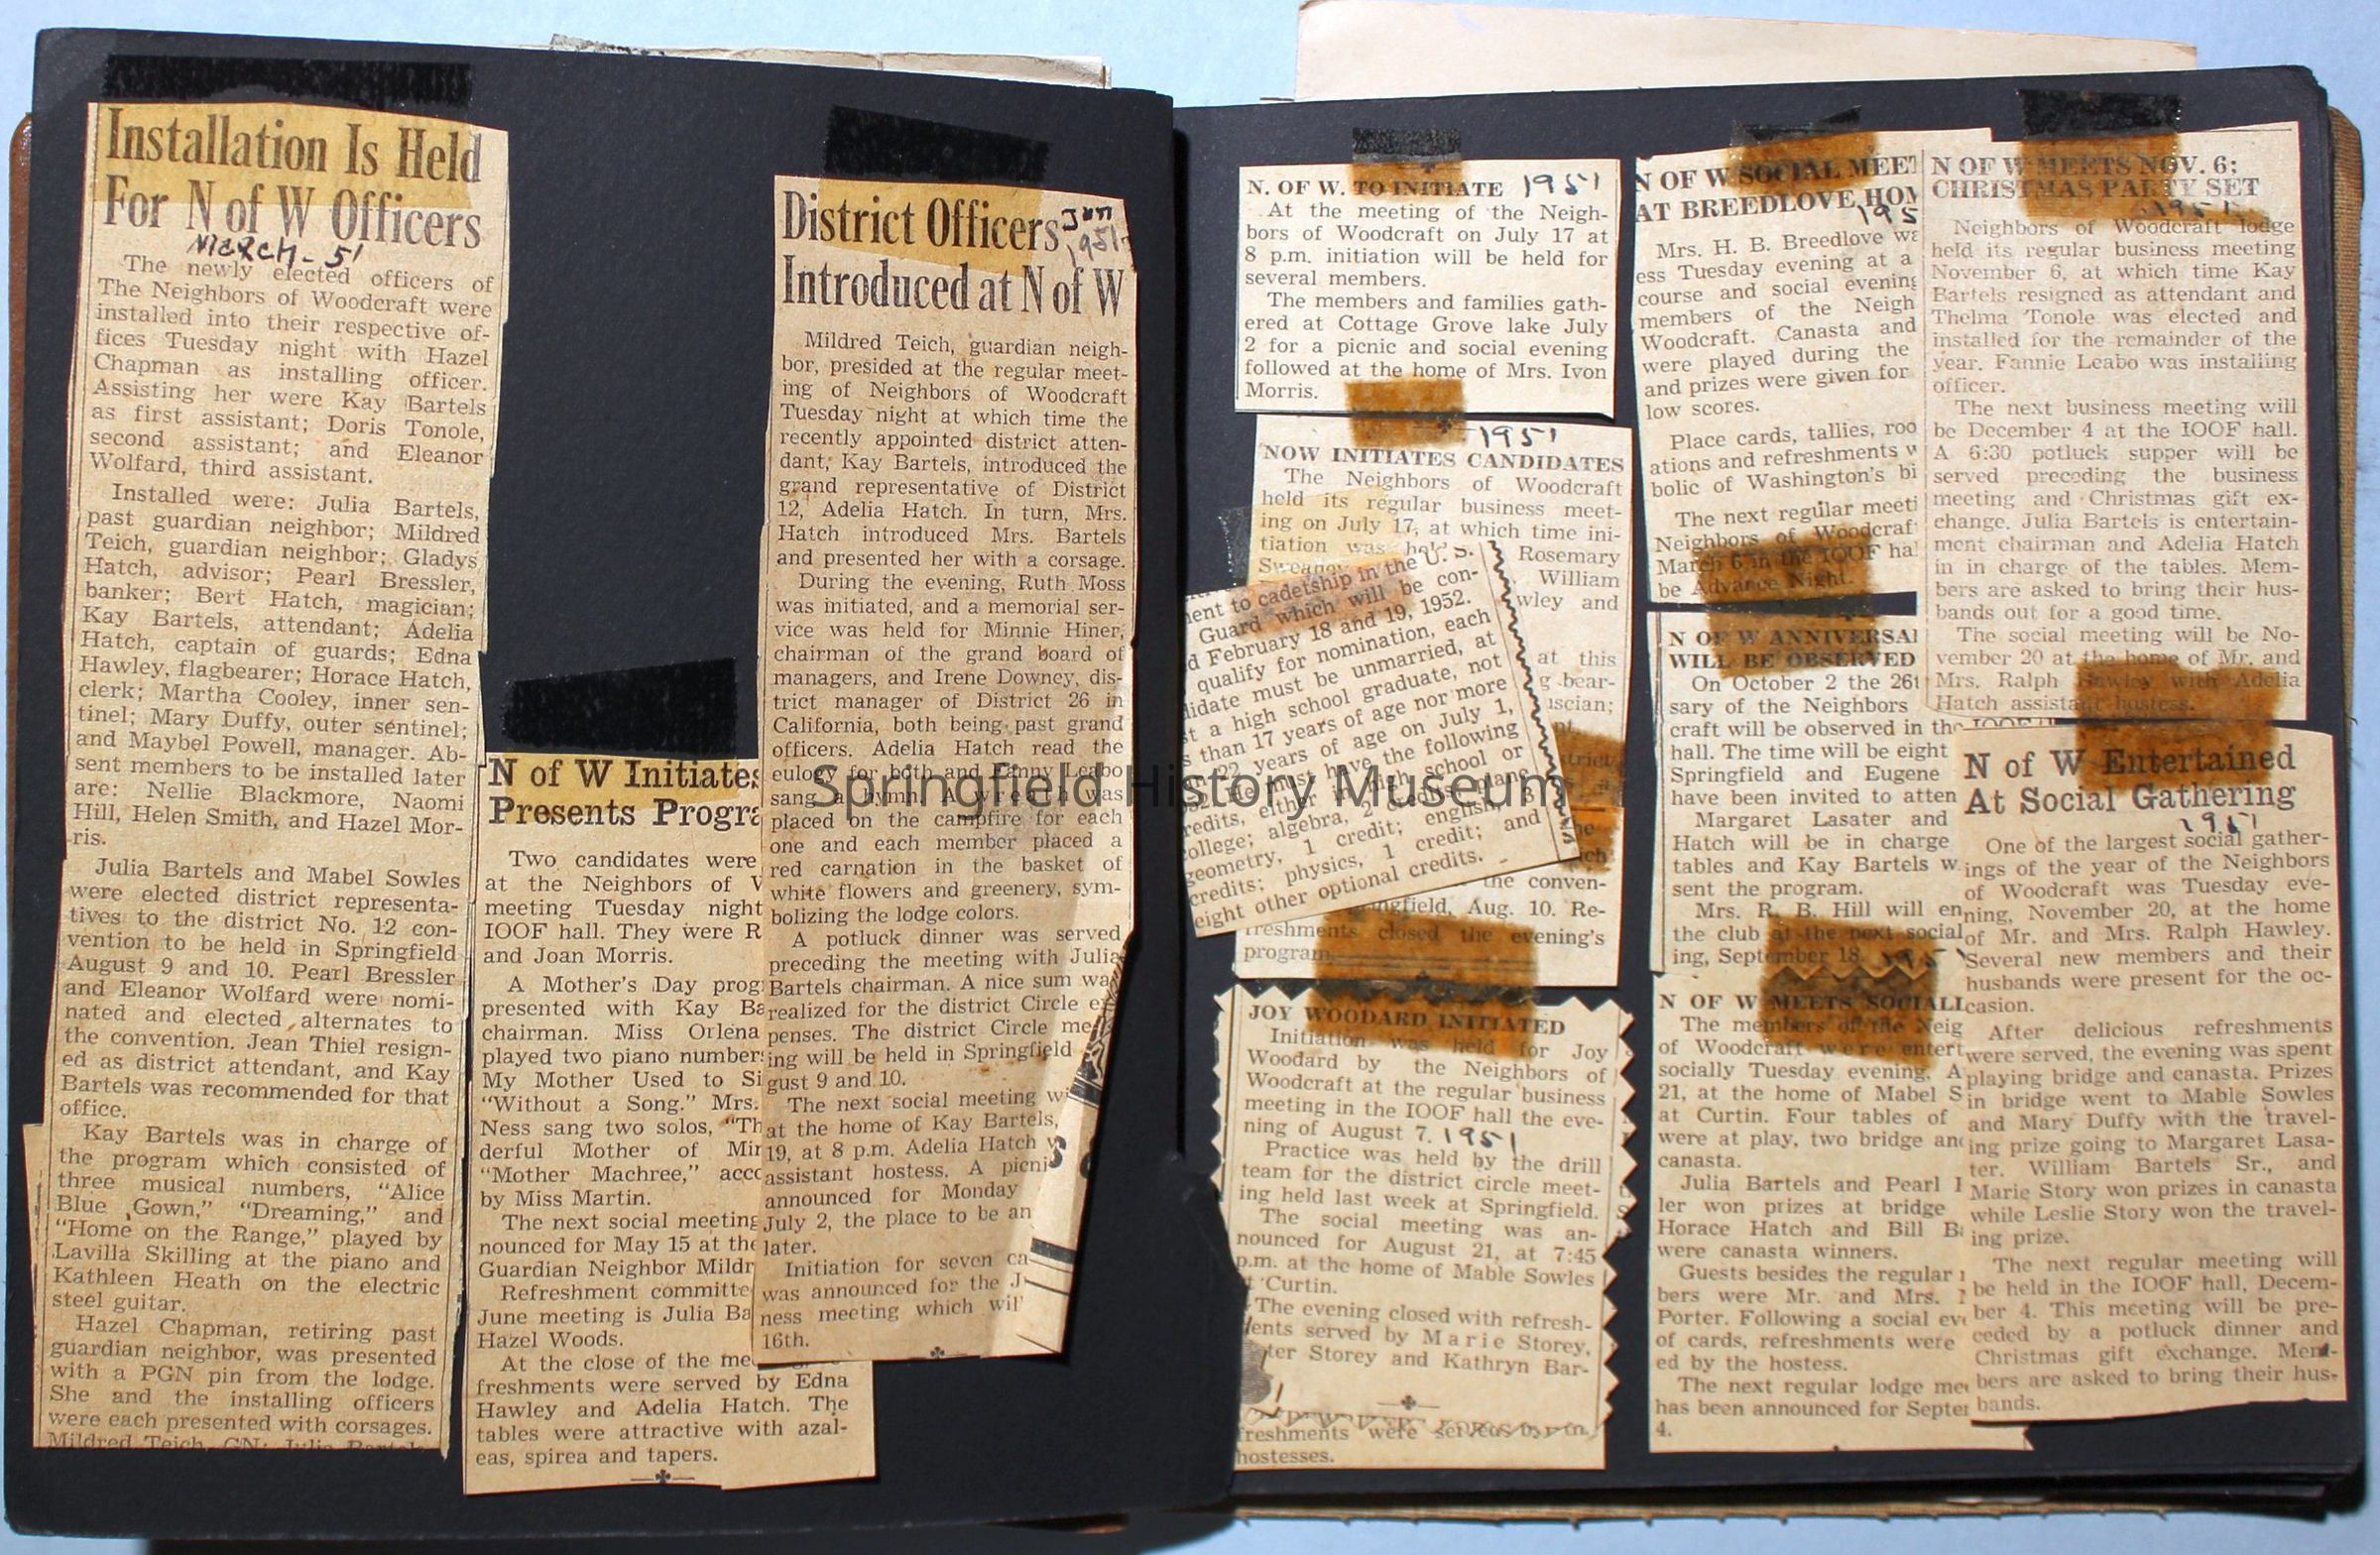 Installation Is Held
For N of W Officers
March - 51
The newly elected officers of
The Neighbors of Woodcraft were
installed into their respective of-
fices Tuesday night with Hazel
Chapman as installing officer.
Assisting her were Kay Bartels
as first assistant; Doris Tonole,
second assistant; and Eleanor
Wolfard, third assistant.
Installed were: Julia Bartels,
past guardian neighbor; Mildred
Teich, guardian neighbor; Gladys
Hatch, advisor; Pearl Bressler,
banker; Bert Hatch, magician;
Kay Bartels, attendant; Adelia
Hatch, captain of guards; Edna
Hawley, flagbearer; Horace Hatch,
clerk; Martha Cooley, inner sen-
tinel; Mary Duffy, outer sentinel;
and Maybel Powell, manager. Ab-
sent members to be installed later
are: Nellie Blackmore, Naomi
Hill, Helen Smith, and Hazel Mor-
ris.
Julia Bartels and Mabel Sowles
were elected district representa-
tives to the district No. 12 con-
vention to be held in Springfield
August 9 and 10. Pearl Bressler
and Eleanor Wolfard were nomi-
nated and elected alternates to
the convention. Jean Thiel resign-
ed as district attendant, and Kay
Bartels was recommended for that
office.
Kay Bartels was in charge of
the program which consisted of
three musical numbers, "Alice
Blue Gown," "Dreaming," and
"Home on the Range," played by
Lavilla Skilling at the piano and
Kathleen Heath on the electric
steel guitar.
Hazel Chapman, retiring past
guardian neighbor, was presented
with a PGN pin from the lodge.
She and the installing officers
were each presented with corsages.
Mildred Teich, GN; Julia Bartels
N of W Initiates
Presents Progra
Two candidates were
at the Neighbors of
meeting Tuesday night
IOOF hall. They were R
and Joan Morris.
A Mother's Day prog
presented with Kay Ba
chairman. Miss Orlena
played two piano number
My Mother Used to Si
"Without a Song." Mrs.
Ness sang two solos, "Th
derful Mother of Min
"Mother Machree," acco
by Miss Martin.
The next social meeting
nounced for May 15 at the
Guardian Neighbor Mildr
Refreshment committe
June meeting is Julia Ba
Hazel Woods.
At the close of the me
freshments were served by Edna
Hawley and Adelia Hatch. The
tables were attractive with azal-
eas, spirea and tapers.
District Officers
Jun 1951
Introduced at N of W
Mildred Teich, guardian neigh-
bor, presided at the regular meet-
ing of Neighbors of Woodcraft
Tuesday night at which time the
recently appointed district atten-
dant, Kay Bartels, introduced the
grand representative of District
12, Adelia Hatch. In turn, Mrs.
Hatch introduced Mrs. Bartels
and presented her with a corsage.
During the evening, Ruth Moss
was initiated, and a memorial ser-
vice was held for Minnie Hiner,
chairman of the grand board of
managers, and Irene Downey, dis-
trict manager of District 26 in
California, both being past grand
officers. Adelia Hatch read the
eulogy for both and Fanny Leabo
sang a hymn. A was
placed on the campfire for each
one and each member placed a
red carnation in the basket of
white flowers and greenery, sym-
bolizing the lodge colors.
A potluck dinner was served
preceding the meeting with Julia
Bartels chairman. A nice sum wa
realized for the district Circle ex
penses. The district Circle me
ing will be held in Springfield
gust 9 and 10.
The next social meeting wi
at the home of Kay Bartels,
19, at 8 p.m. Adelia Hatch
assistant hostess. A picni
announced for Monday
July 2, the place to be an
later.
Initiation for seven ca
was announced for the J
ness meeting which wil
16th.
N. OF W. TO INITIATE 1951
At the meeting of the Neigh-
bors of Woodcraft on July 17 at
8 p.m. initiation will be held for
several members.
The members and families gath-
ered at Cottage Grove lake July
2 for a picnic and social evening
followed at the home of Mrs. Ivon
Morris.
1951
NOW INITIATES CANDIDATES
The Neighbors of Woodcraft
held its regular business meet-
ing on July 17, at which time ini-
tiation was hel
Rosemary
William
wley and
at this
g bear-
uscian;
the conven-
ngfield, Aug. 10. Re-
freshments closed the evening's
program.
ment to cadetship in the U. S.
Guard which will be con-
d February 18 and 19, 1952.
qualify for nomination, each
didate must be unmarried, at
st a high school graduate, not
s than 17 years of age nor more
22 years of age on July 1,
He must have the following
redits, either in high school or
college; algebra, 2 credits; plane
geometry, 1 credit; english, 3
credits; physics, 1 credit; and
eight other optional credits.
JOY WOODARD INITIATED
Initiation was held for Joy
Woodard by the Neighbors of
Woodcraft at the regular business
meeting in the IOOF hall the eve-
ning of August 7. 1951
Practice was held by the drill
team for the district circle meet-
ing held last week at Springfield.
The social meeting was an-
nounced for August 21, at 7:45
p.m. at the home of Mable Sowles
at Curtin.
The evening closed with refresh-
ments served by Marie Storey,
ter Storey and Kathryn Bar-
freshments were served by
hostesses.
N OF W SOCIAL MEET
AT BREEDLOVE HOM
195
Mrs. H. B. Breedlove wa
ess Tuesday evening at a
course and social evening
members of the Neigh
Woodcraft. Canasta and
were played during the
and prizes were given for
low scores.
Place cards, tallies, roo
ations and refreshments w
bolic of Washington's bi
The next regular meeti
Neighbors of Woodcraf
March 6 in the IOOF ha
be Advance Night.
N OF W ANNIVERSA
WILL BE OBSERVED
On October 2 the 26t
sary of the Neighbors
craft will be observed in the IOOF
hall. The time will be eight
Springfield and Eugene
have been invited to atten
Margaret Lasater and
Hatch will be in charge
tables and Kay Bartels w
sent the program.
Mrs. R. B. Hill will en
the club at the next social
ing, September 18. 195
N OF W MEETS SOCIALL
The members of the Neig
of Woodcraft were entert
socially Tuesday evening, A
21, at the home of Mabel S
at Curtin. Four tables of
were at play, two bridge and
canasta.
Julia Bartels and Pearl
ler won prizes at bridge
Horace Hatch and Bill Ba
were canasta winners.
Guests besides the regular
bers were Mr. and Mrs.
Porter. Following a social eve
of cards, refreshments were
ed by the hostess.
The next regular lodge mee
has been announced for Septem
4.
N OF W MEETS NOV. 6;
CHRISTMAS PARTY SET
1951
Neighbors of Woodcraft lodge
held its regular business meeting
November 6, at which time Kay
Bartels resigned as attendant and
Thelma Tonole was elected and
installed for the remainder of the
year. Fannie Leabo was installing
officer.
The next business meeting will
be December 4 at the IOOF hall.
A 6:30 potluck supper will be
served preceding the business
meeting and Christmas gift ex-
change. Julia Bartels is entertain-
ment chairman and Adelia Hatch
in in charge of the tables. Mem-
bers are asked to bring their hus-
bands out for a good time.
The social meeting will be No-
vember 20 at the home of Mr. and
Mrs. Ralph Hawley with Adelia
Hatch assistant hostess.
N of W Entertained
At Social Gathering
1951
One of the largest social gather-
ings of the year of the Neighbors
of Woodcraft was Tuesday eve-
ning, November 20, at the home
of Mr. and Mrs. Ralph Hawley.
Several new members and their
husbands were present for the oc-
casion.
After delicious refreshments
were served, the evening was spent
playing bridge and canasta. Prizes
in bridge went to Mable Sowles
and Mary Duffy with the travel-
ing prize going to Margaret Lasa-
ter. William Bartels Sr., and
Marie Story won prizes in canasta
while Leslie Story won the travel-
ing prize.
The next regular meeting will
be held in the IOOF hall, Decem-
ber 4. This meeting will be pre-
ceded by a potluck dinner and
Christmas gift exchange. Mem-
bers are asked to bring their hus-
bands.
Springfield History Museum